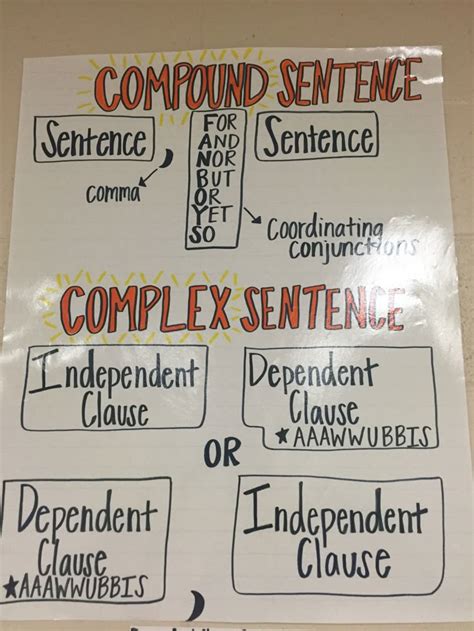 COMPOUND SENTENCE
Sentence , FOR Sentence
AND
NOR
BUT
OR
YET
SO
comma
Coordinating
conjunctions
COMPLEX SENTENCE
Independent
Clause
Dependent
Clause
★AAAWWUBBIS
OR
Dependent
Clause
★AAAWWUBBIS
,
Independent
Clause